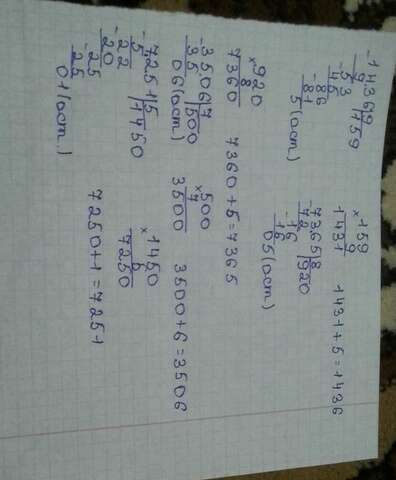 -1436|9
9 |159
-53
45
-86
81
5(ост)
×159
9
1431 1431+5=1436
-7365|8
72 |920
-16
16
05(ост)
×920
8
7360 7360+5=7365
-3506|7
35 |500
06(ост)
×500
7
3500 3500+6=3506
-7251|5
5 |1450
-22
20
-25
25
01(ост)
×1450
5
7250
7250+1=7251